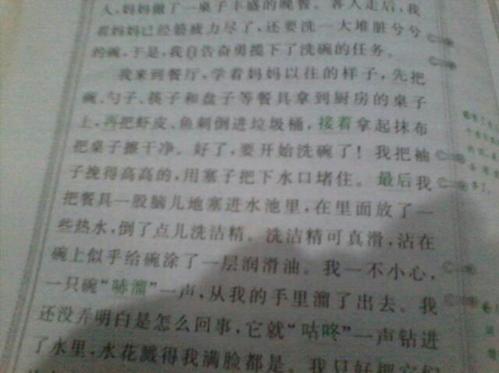 人,妈妈做了一桌子丰盛的晚餐。客人走后,我
看妈妈已经筋疲力尽了,还要洗一大堆脏兮兮
的碗,于是,我自告奋勇揽下了洗碗的任务。
我来到餐厅,学着妈妈以往的样子,先把
碗、勺子、筷子和盘子等餐具拿到厨房的桌子
上,再把虾皮、鱼刺倒进垃圾桶,接着拿起抹布
把桌子擦干净。好了,要开始洗碗了!我把袖
子挽得高高的,用塞子把下水口堵住。最后我
把餐具一股脑儿地塞进水池里,在里面放了一
些热水,倒了点儿洗洁精。洗洁精可真滑,沾在
碗上似乎给碗涂了一层润滑油。我一不小心,
一只碗“哧溜”一声,从我的手里溜了出去。我
还没弄明白是怎么回事,它就“咕咚”一声钻进
了水里,水花溅得我满脸都是。我只好把它们